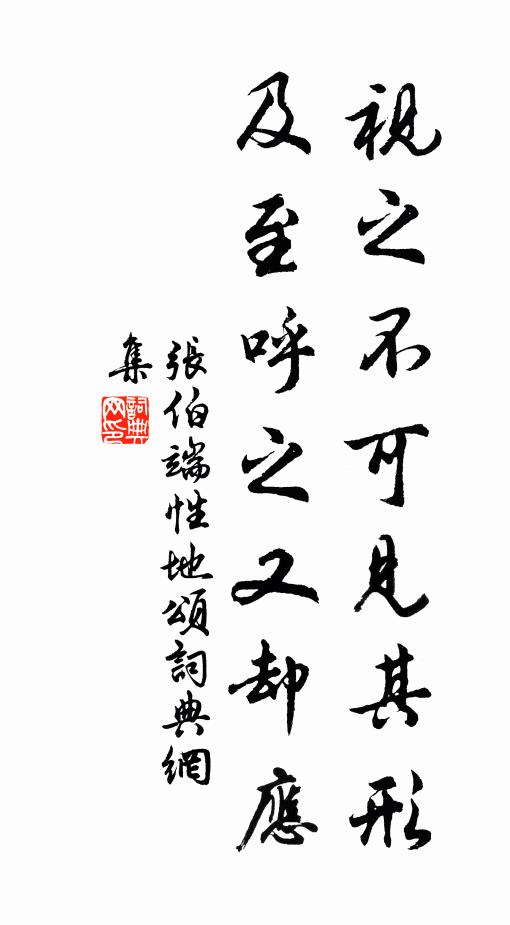 視之不可見其形
及至呼之又却應
張伯端性地頌詞典網
集
詞典
网印